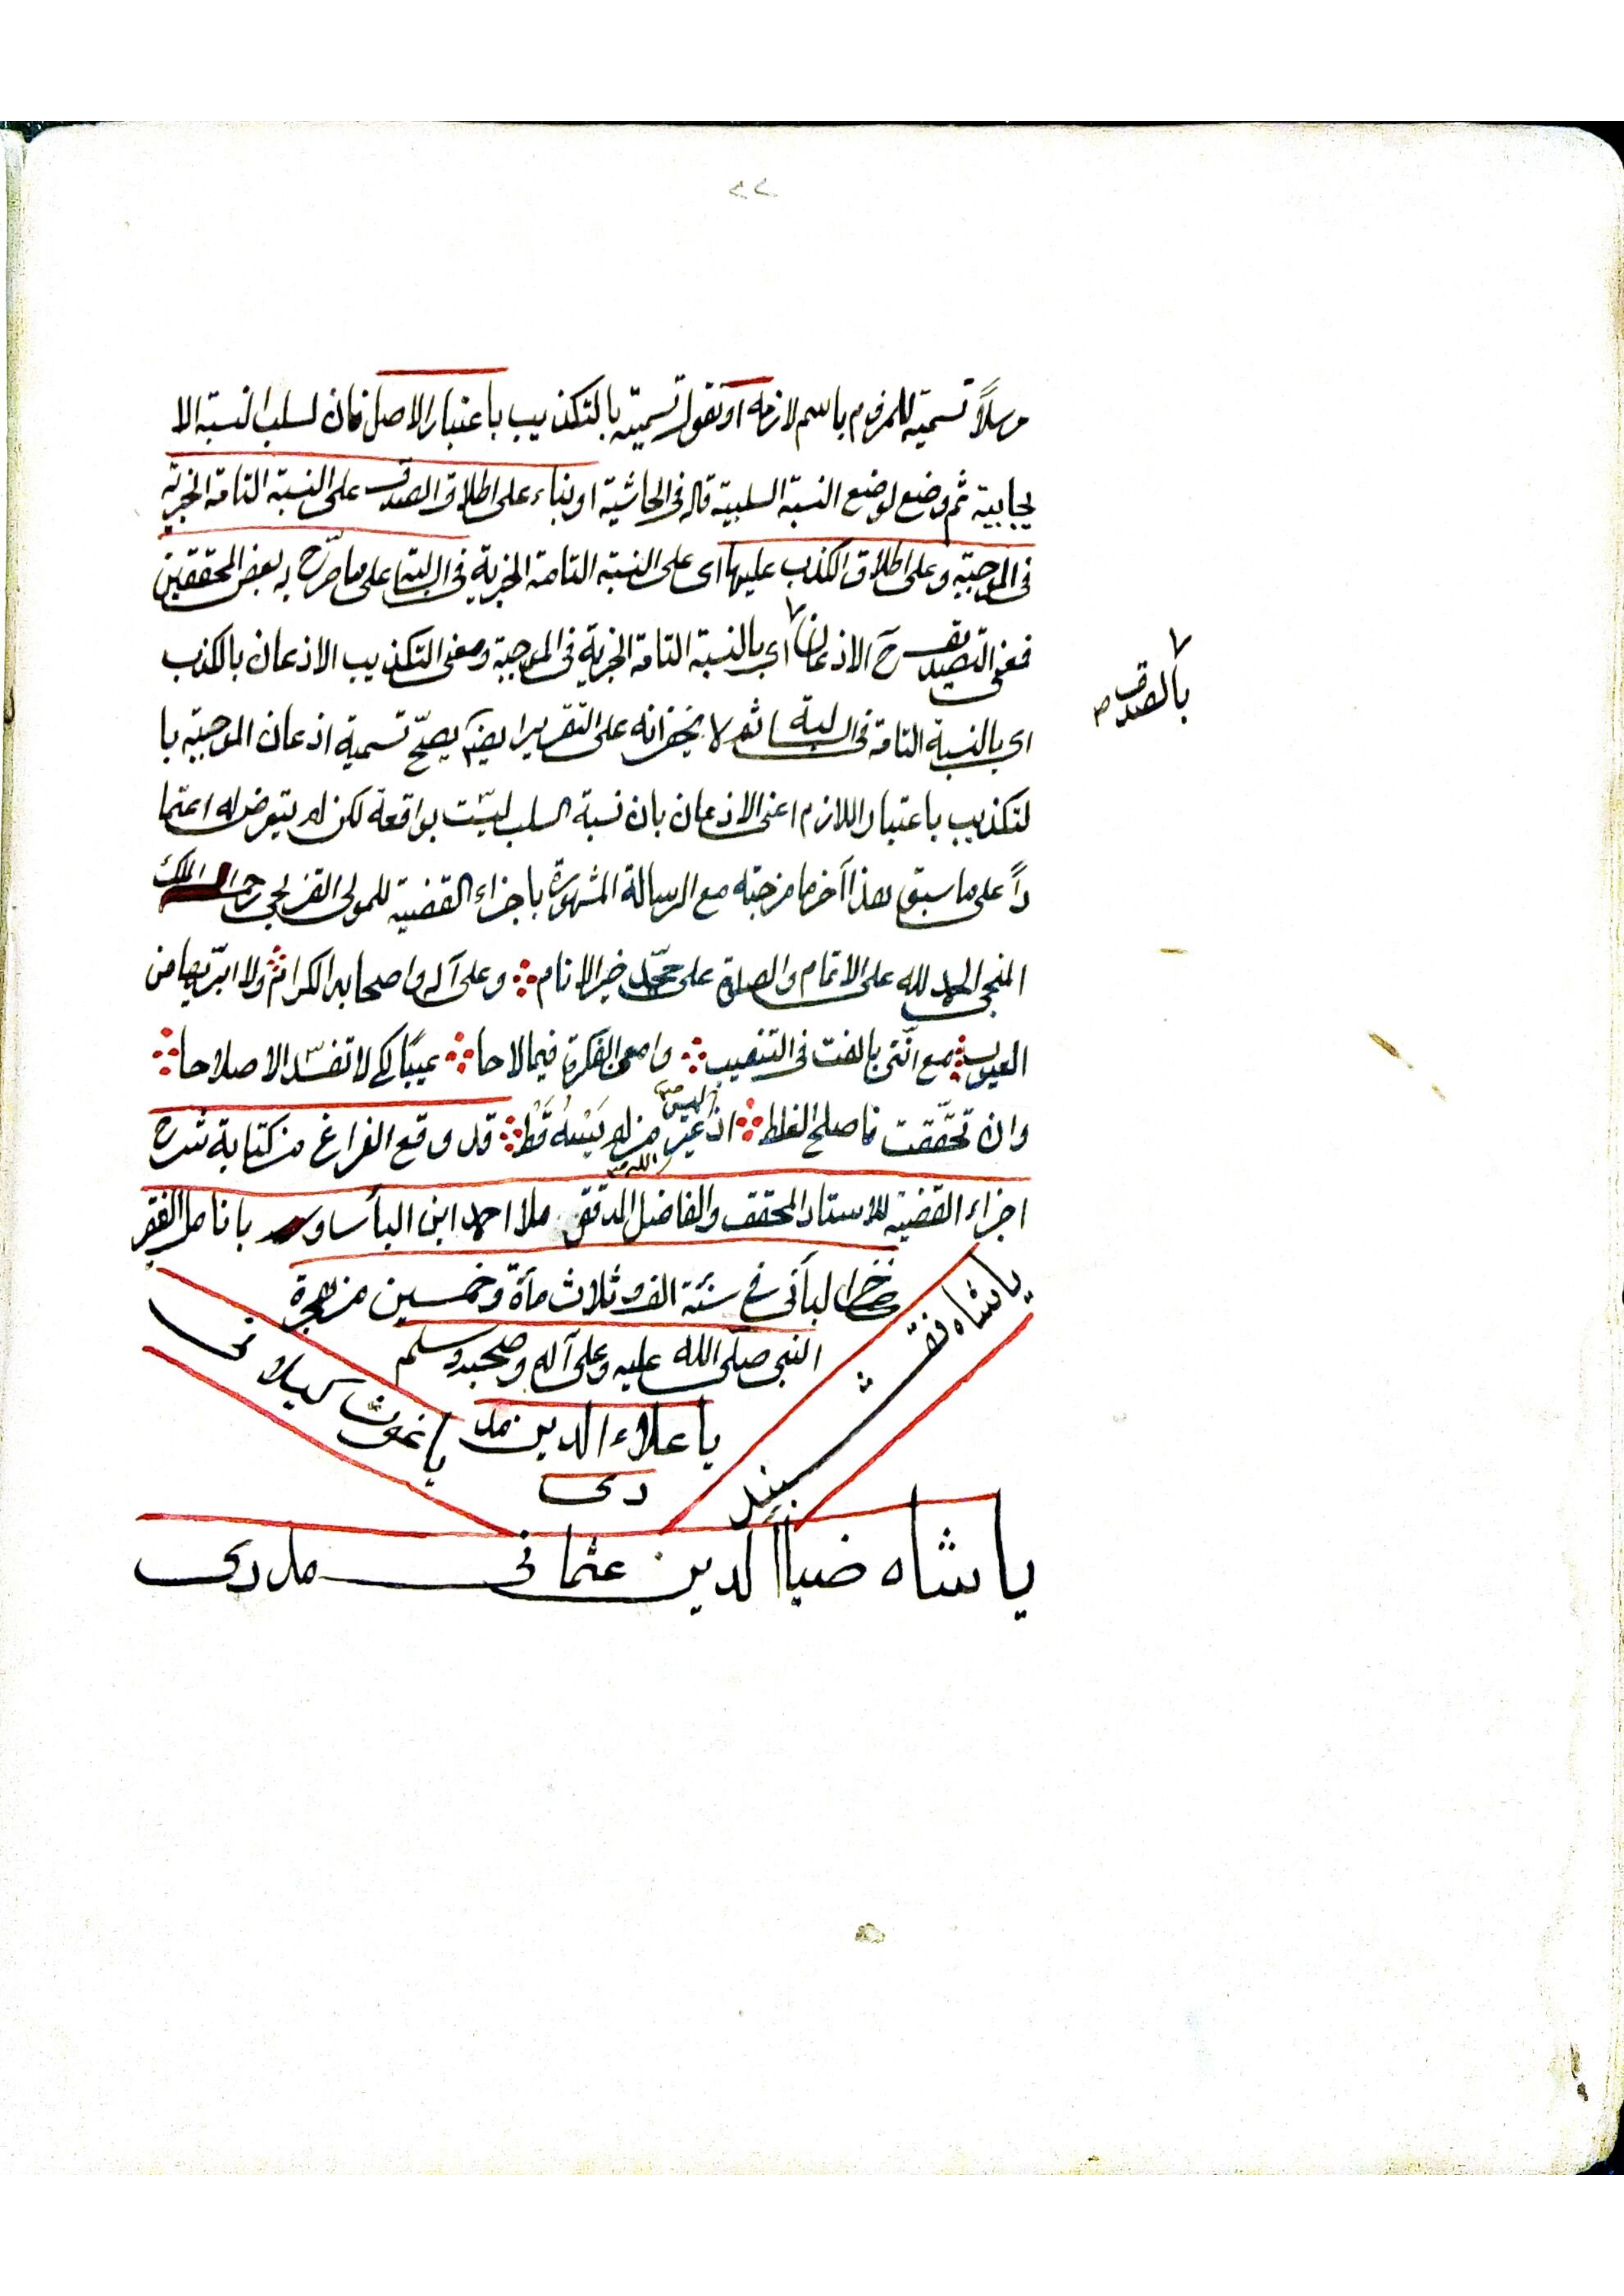 ٢٢
مرسلاً تسمية للملزوم باسم لازمه او نقول تسميته بالتكذيب باعتبار الاصل فان لسلب النسبة الا
يجابية ثم وضع لوضع النسبة السلبية قاله في الحاشية او بناء على اطلاق الصدق على النسبة التامة الخبرية
في الموجبة وعلى اطلاق الكذب عليها اى على النسبة التامة الخبرية في السالبة على ما صرّح به بعض المحققين
فمعنى التصديق ح الاذعان اى بالنسبة التامة الخبرية في الموجبة ومعنى التكذيب الاذعان بالكذب
بالصدق صح
اى بالنسبة التامة في السالبة ثم لا يخفى انه على التقريرايضا يصحّ تسمية اذعان الموجبة با
لتكذيب باعتبار اللازم اعنى الاذعان بان نسبة السلب ليست بواقعة لكن لم يتعرض له اعتما
داً على ما سبق هذا آخر ما مزجته مع الرسالة المشهورة باجزاء القضية للمولى القزلجى رحم الملك
المنجى الحمد لله على الاتمام والصلوة على محمّد خير الانام وعلى آله واصحابه الكرام ولا ابرّيها من
العيوب مع انّنى بالغت في التنقيب وامعن الفكرة فيما لاحا عيبًا كى لا تفسد الاصلاحا
وان تحقّقت فاصلح الغلط اذ غير من لم يَسْهُ قَط قد وقع الفراغ من كتابة شرح
اليس صح
اجزاء القضية للاستاد المحقق والفاضل المدقق ملا احمد ابن البأساوى بانامل الفقر
خضر البأنى في سنة الف وثلاث مأة وخمسين من هجرة
النبى صلّى الله عليه وعلى آله وصحبه وسلم
يا شاه نقشبند
يا غوث كيلانى
يا علاء الدين مد
دى
يا شاه ضياالدين عثمانى مددى